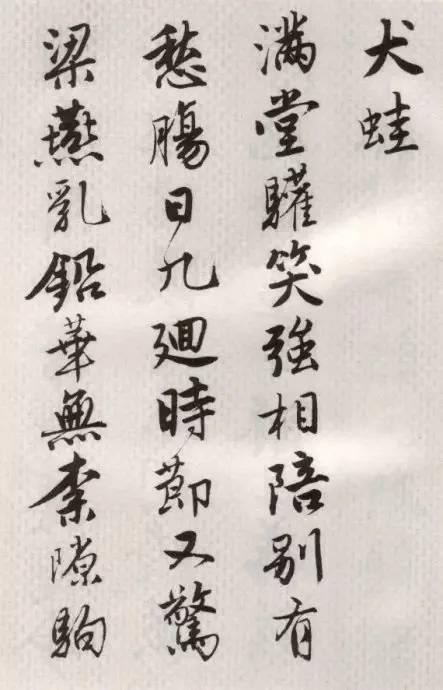 犬蛙
滿堂驩笑強相陪别有
愁腸日九廻時節又驚
梁燕乳鉛華無柰隙駒